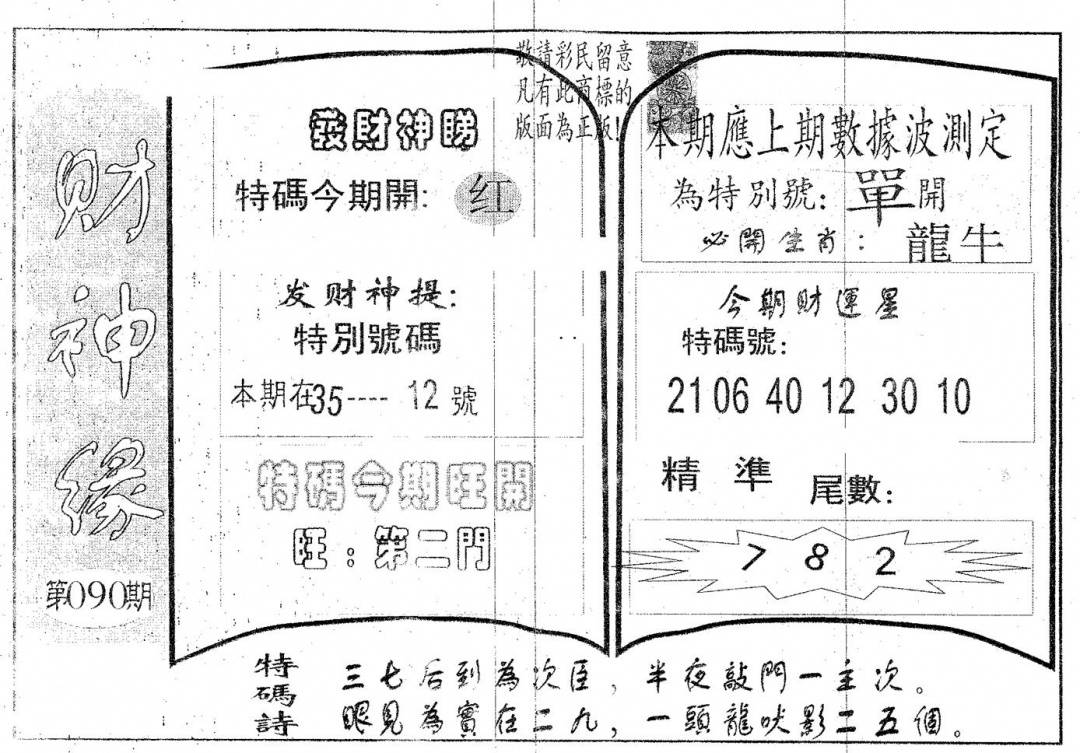 財神緣
第090期
敬請彩民留意
凡有此商標的
版面為正版!
發財神睇
特碼今期開: 红
发财神提:
特別號碼
本期在35---- 12 號
特碼今期旺開
旺:第二門
本期應上期數據波測定
為特別號: 單開
必開生肖: 龍牛
今期財運星
特碼號:
21 06 40 12 30 10
精準 尾數:
7 8 2
特碼詩
三七后到為次臣,半夜敲門一主次。
眼見為實在二九,一頭龍吠影二五個。